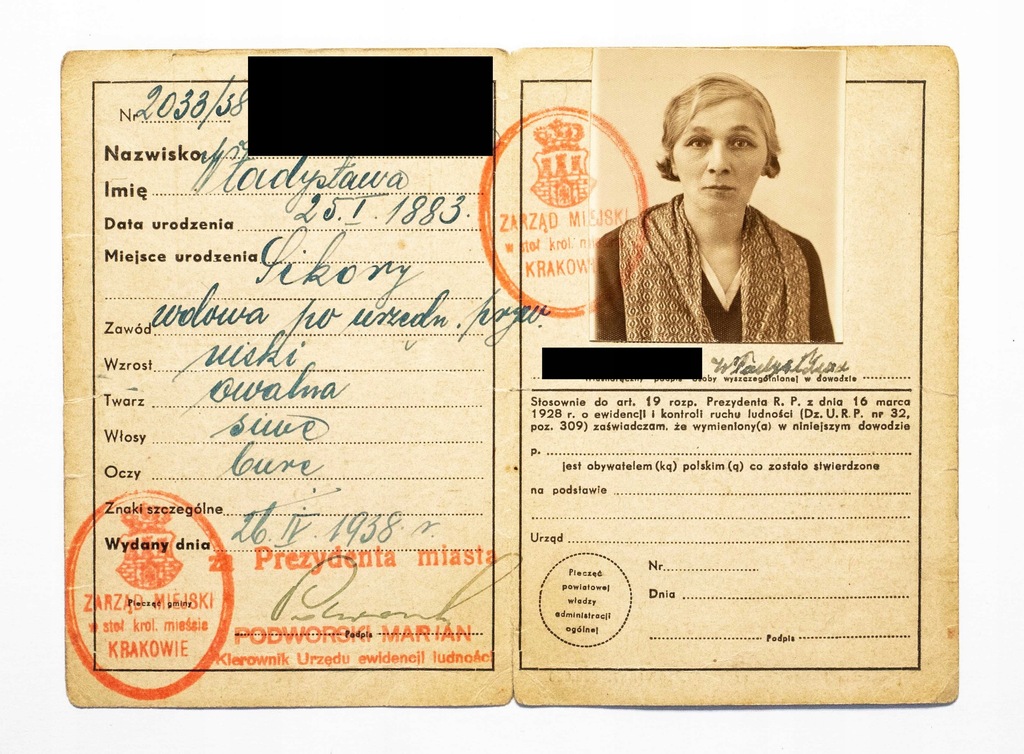 Nr. 2033/38
Nazwisko
Imię Władysława
Data urodzenia 25.I.1883.
Miejsce urodzenia Sikory
Zawód wdowa po urzędn. pryw.
Wzrost niski
Twarz owalna
Włosy siwe
Oczy bure
Znaki szczególne
Wydany dnia 26.IV.1938 r.
za Prezydenta miasta
ZARZĄD MIEJSKI
w stoł. król. mieście
KRAKOWIE
Pieczęć gminy
Podpis
PODWORSKI MARJAN
Kierownik Urzędu ewidencji ludności
ZARZĄD MIEJSKI
w stoł. król.
KRAKOWI
Własnoręczny podpis osoby wyszczególnionej w dowodzie
Stosownie do art. 19 rozp. Prezydenta R. P. z dnia 16 marca
1928 r. o ewidencji i kontroli ruchu ludności (Dz. U. R. P. nr 32,
poz. 309) zaświadczam, że wymieniony(a) w niniejszym dowodzie
p.
jest obywatelem (ką) polskim (ą) co zostało stwierdzone
na podstawie
Urząd
Pieczęć
powiatowej
władzy
administracji
ogólnej
Nr.
Dnia
Podpis